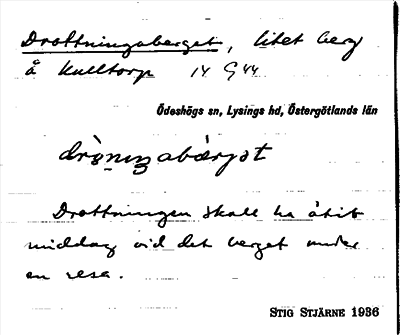 Drottningaberget, litet berg
å Kulltorp 14 G 44
Ödeshögs sn, Lysings hd, Östergötlands län
Drottningen skall ha ätit
middag vid det berget under
en resa.
STIG STJÄRNE 1936